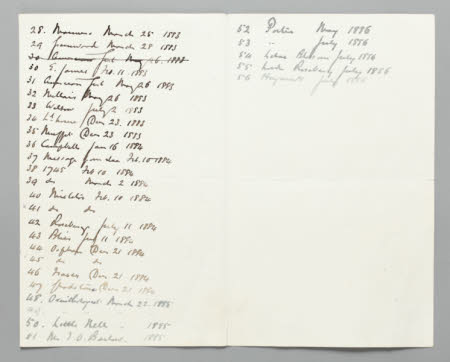 28. March 25 1883
29 Greenwood March 28 1883
30 May 26. 1883
30 E. James Feb. 11 1883
31 American Girl May 26 1883
32 Millais May 26 1883
33 Wilson July 2 1883
34 Dec 23. 1883
35 Muffet Dec 23 1883
36 Campbell Jan 16 1884
37 Message from sea Feb. 10 1884
38 1745 Feb 10 1884
39 do March 2 1884
40 Mistletoe Feb. 10 1884
41 do do
42 Rosebery July 11 1884
43 Alice Jan 11 1884
44 Orphans Dec 21 1884
45 do do
46 Dec 21 1884
47 Gladstone Dec 21 1884
48. Ornithologist March 22 1885
50. Little Nell 1885
51. Mrs T. O. Barlow. 1885
52 Portia May 1886
53 " July 1886
54 Lilac Blossom July 1886
55 Lord Rosebery July 1886
56 July 1886